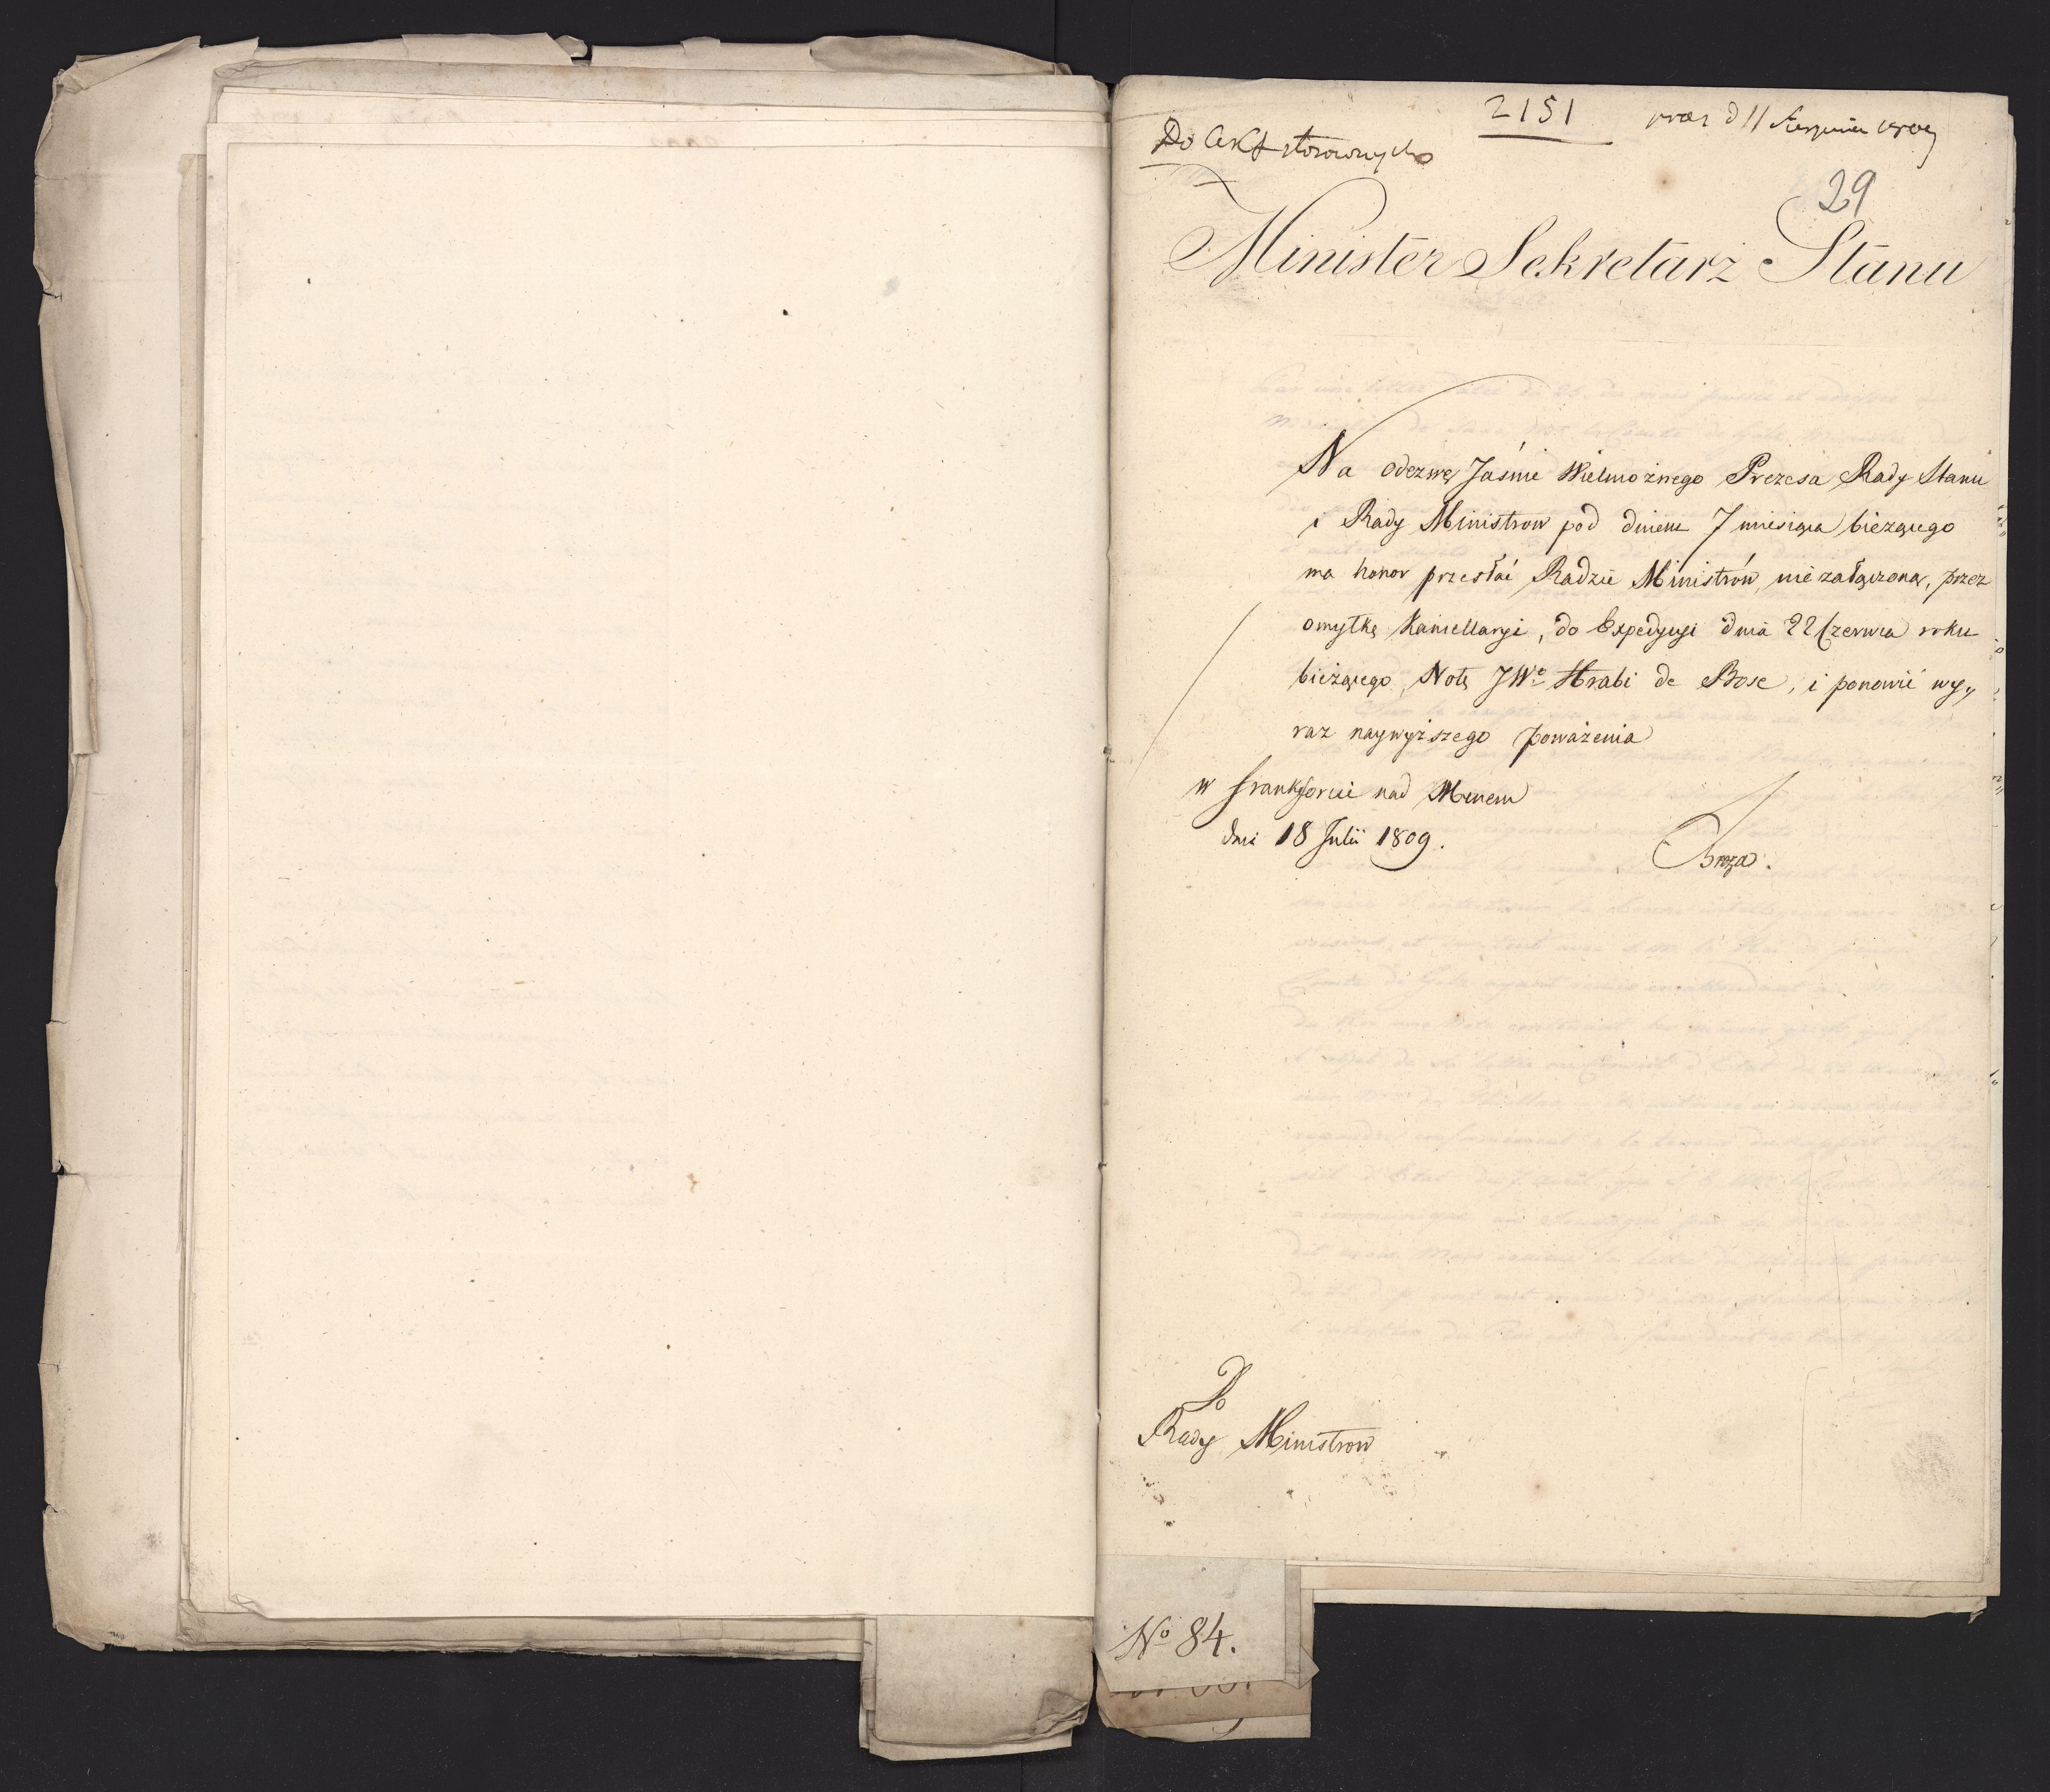 2151
praes d 11 Sierpnia 1809
Do Akt stosownych
29
Minister Sekretarz Stanu
Na odezwę Jaśnie Wielmożnego Prezesa Rady Stanu
i Rady Ministrow pod dniem 7 miesiąca bieżącego
ma honor przesłać Radzie Ministrów, niezałączoną, przez
omyłkę Kancellaryi, do Expedycyi dnia 22 Czerwca roku
bieżącego, Notę JWº Hrabi de Bose, i ponowić wy„
raz naywyższego poważenia
w Frankforcie nad Menem
dnia 18 Julii 1809.
Breza.
Do
Rady Ministrow
Nº 84.